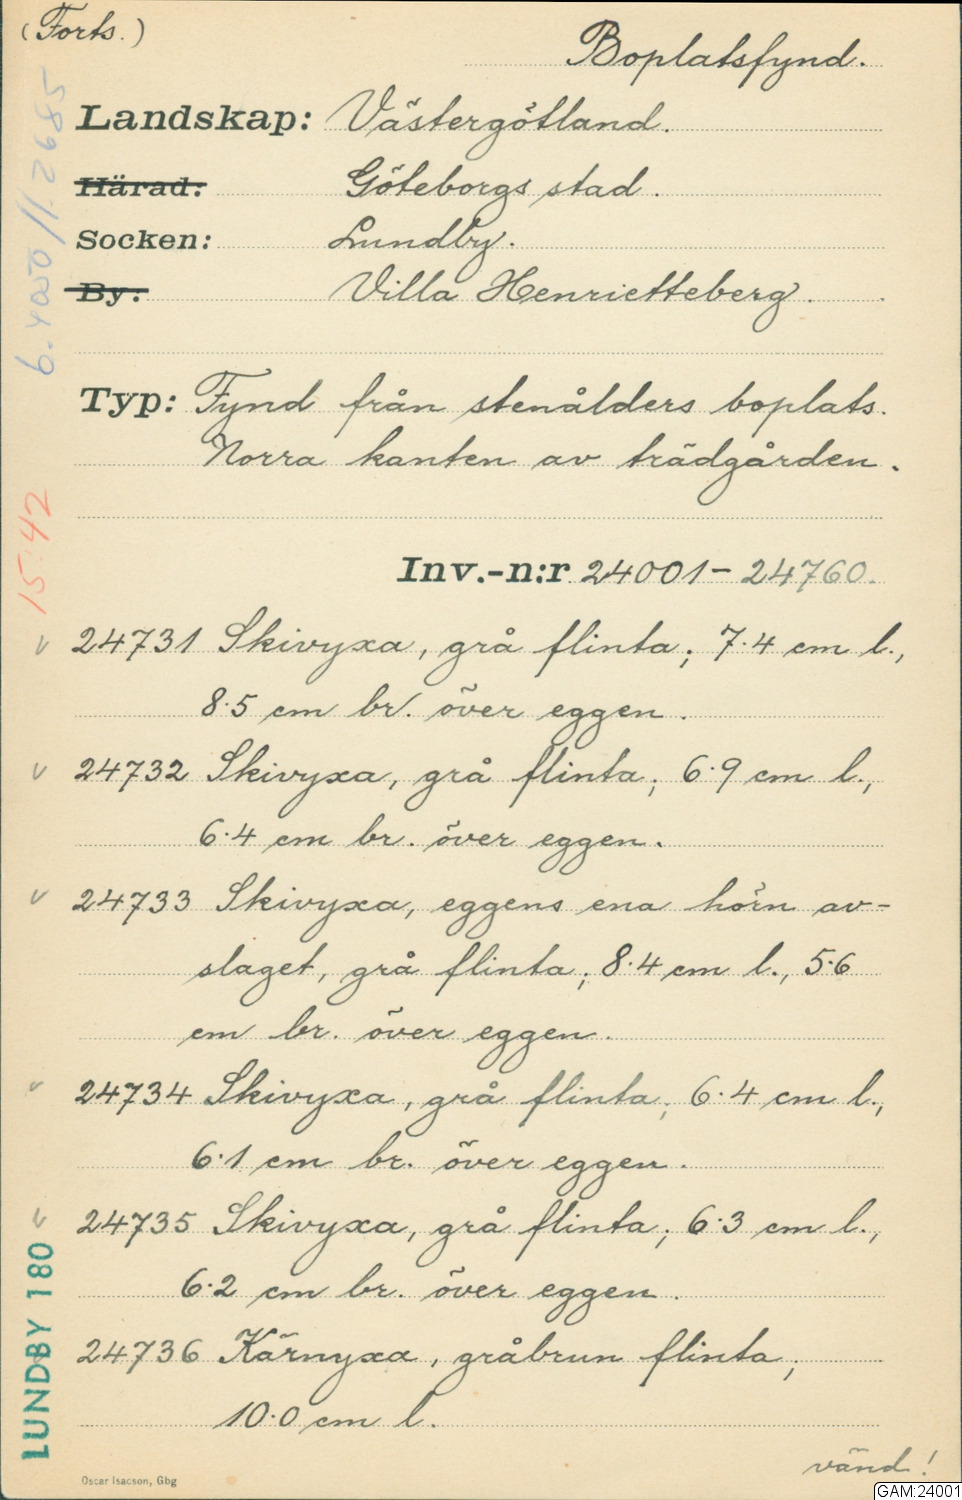 (Forts.)
Boplatsfynd.
Landskap: Västergötland.
Härad: Göteborgs stad.
Socken: Lundby.
By: Villa Henrietteberg.
Typ: Fynd från stenålders boplats.
Norra kanten av trädgården.
Inv.-n:r 24001-24760.
24731 Skivyxa, grå flinta; 7.4 cm l.,
8.5 cm br. över eggen.
24732 Skivyxa, grå flinta; 6.9 cm l.,
6.4 cm br. över eggen.
24733 Skivyxa, eggens ena hörn av-
slaget, grå flinta; 8.4 cm l., 5.6
cm br. över eggen.
24734 Skivyxa, grå flinta; 6.4 cm l.,
6.1 cm br. över eggen.
24735 Skivyxa, grå flinta; 6.3 cm l.,
6.2 cm br. över eggen.
24736 Kärnyxa, gråbrun flinta;
10.0 cm l.
vänd!
Oscar Isacson, Gbg
15:42
LUNDBY 180
GAM:24001